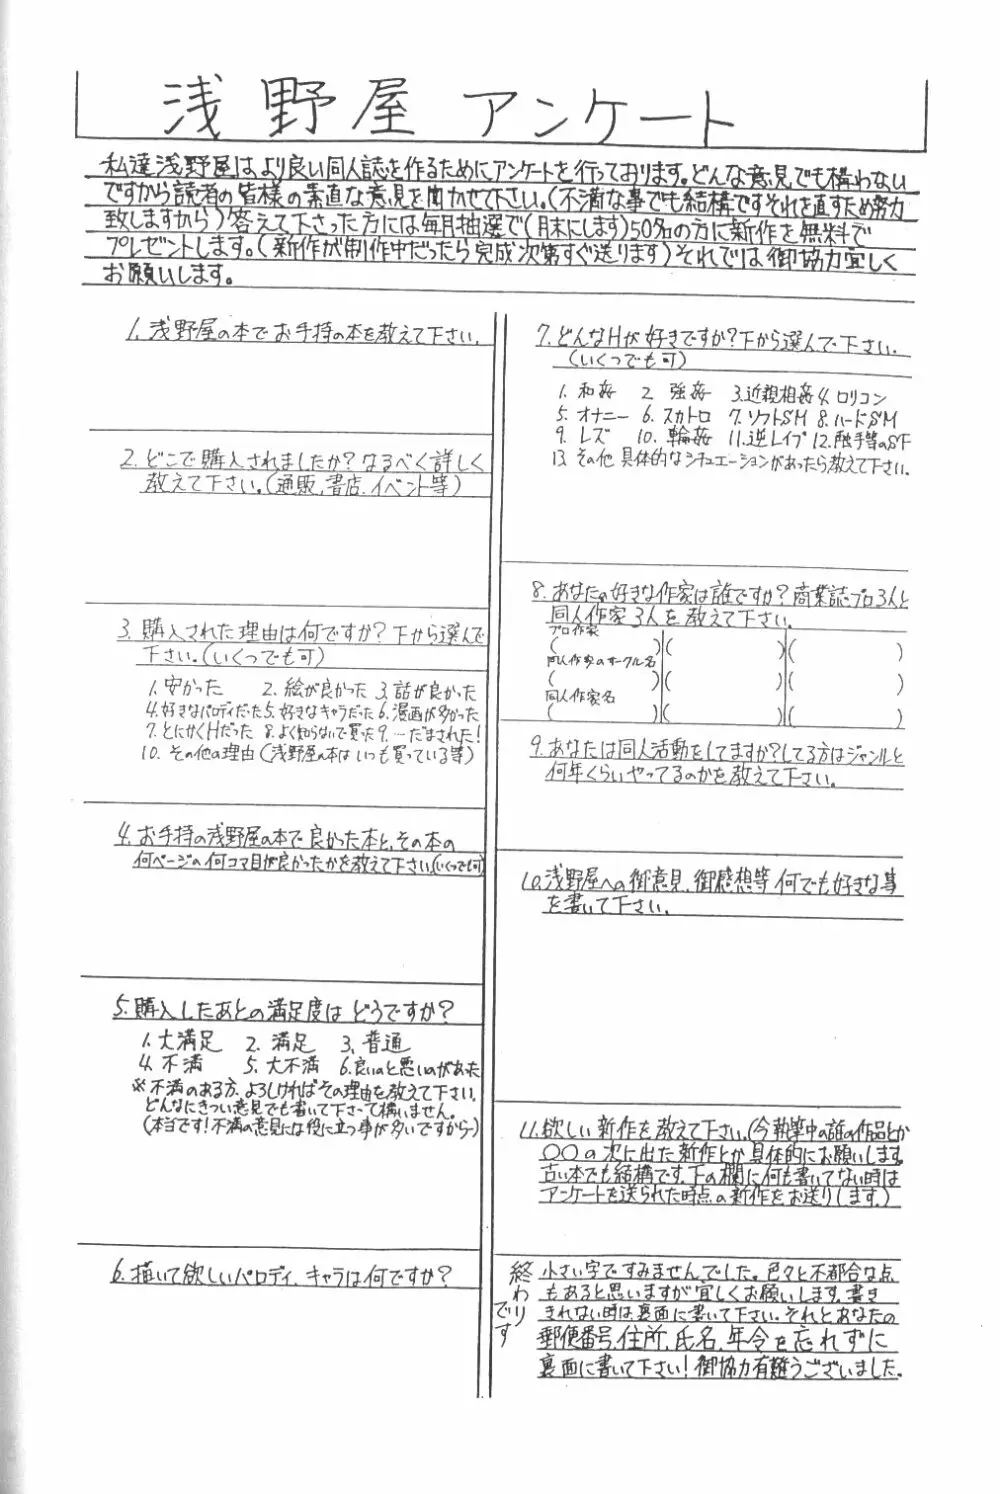 浅野屋 アンケート
私達浅野屋は、より良い同人誌を作るためにアンケートを行っております。どんな意見でも構わない
ですから読者の皆様の素直な意見を聞かせて下さい。(不満な事でも結構ですそれを直すため努力
致しますから)答えて下さった方には毎月抽選で(月末にします)50名の方に新作を無料で
プレゼントします。(新作が制作中だったら完成次第すぐ送ります)それでは御協力宜しく
お願いします。
1.浅野屋の本でお手持の本を教えて下さい。
2.どこで購入されましたか?なるべく詳しく
教えて下さい。(通販,書店.イベント等)
3.購入された理由は何ですか?下から選んで
下さい。(いくつでも可)
1.安かった 2.絵が良かった 3.話が良かった
4.好きなパロディだった 5.好きなキャラだった 6.漫画が多かった
7.とにかくHだった 8.よく知らないで買った 9.…だまされた!
10.その他の理由(浅野屋の本はいつも買っている等)
4.お手持の浅野屋の本で良かった本と、その本の
何ページの何コマ目が良かったかを教えて下さい(いくつでも可)
5.購入したあとの満足度はどうですか?
1.大満足 2.満足 3.普通
4.不満 5.大不満 6.良いのと悪いのがあった
※不満のある方、よろしければその理由を教えて下さい。
どんなにきつい意見でも書いて下さって構いません。
(本当です!不満の意見には役に立つ事が多いですから)
6.描いて欲しいパロディ、キャラは何ですか?
7.どんなHが好きですか?下から選んで下さい。
(いくつでも可)
1.和姦 2.強姦 3.近親相姦 4.ロリコン
5.オナニー 6.スカトロ 7.ソフトSM 8.ハードSM
9.レズ 10.輪姦 11.逆レイプ 12.触手等のSF
13.その他 具体的なシチュエーションがあったら教えて下さい。
8.あなたの好きな作家は誰ですか?商業誌プロ3人と
同人作家3人を教えて下さい。
プロ作家
( )( )( )
同人作家のサークル名
( )( )( )
同人作家名
( )( )( )
9.あなたは同人活動をしてますか?してる方はジャンルと
何年くらいやってるのかを教えて下さい。
10.浅野屋への御意見、御感想等何でも好きな事
を書いて下さい。
11.欲しい新作を教えて下さい。(今執筆中の誰の作品とか
〇〇の次に出た新作とか具体的にお願いします。
古い本でも結構です。下の欄に何も書いてない時は
アンケートを送られた時点の新作をお送りします。)
終わりです
小さい字ですみませんでした。色々と不都合な点
もあると思いますが宜しくお願いします。書き
きれない時は裏面に書いて下さい。それとあなたの
郵便番号、住所、氏名、年令を忘れずに
裏面に書いて下さい!御協力有難うございました。